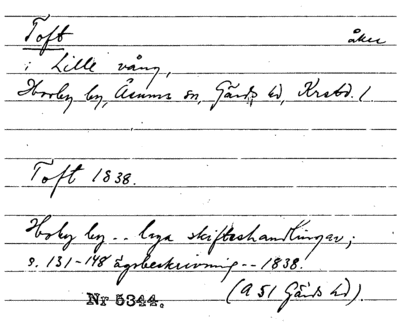 Toft åker
i Lille vång,
Horby by, Äsums sn, Gärds hd, Krstd. l
Toft 1838.
Hoby by .. laga skifteshandlingar;
s. 131-148 ägobeskrivning -- 1838.
Nr 5344. (A 51 Gärds hd).